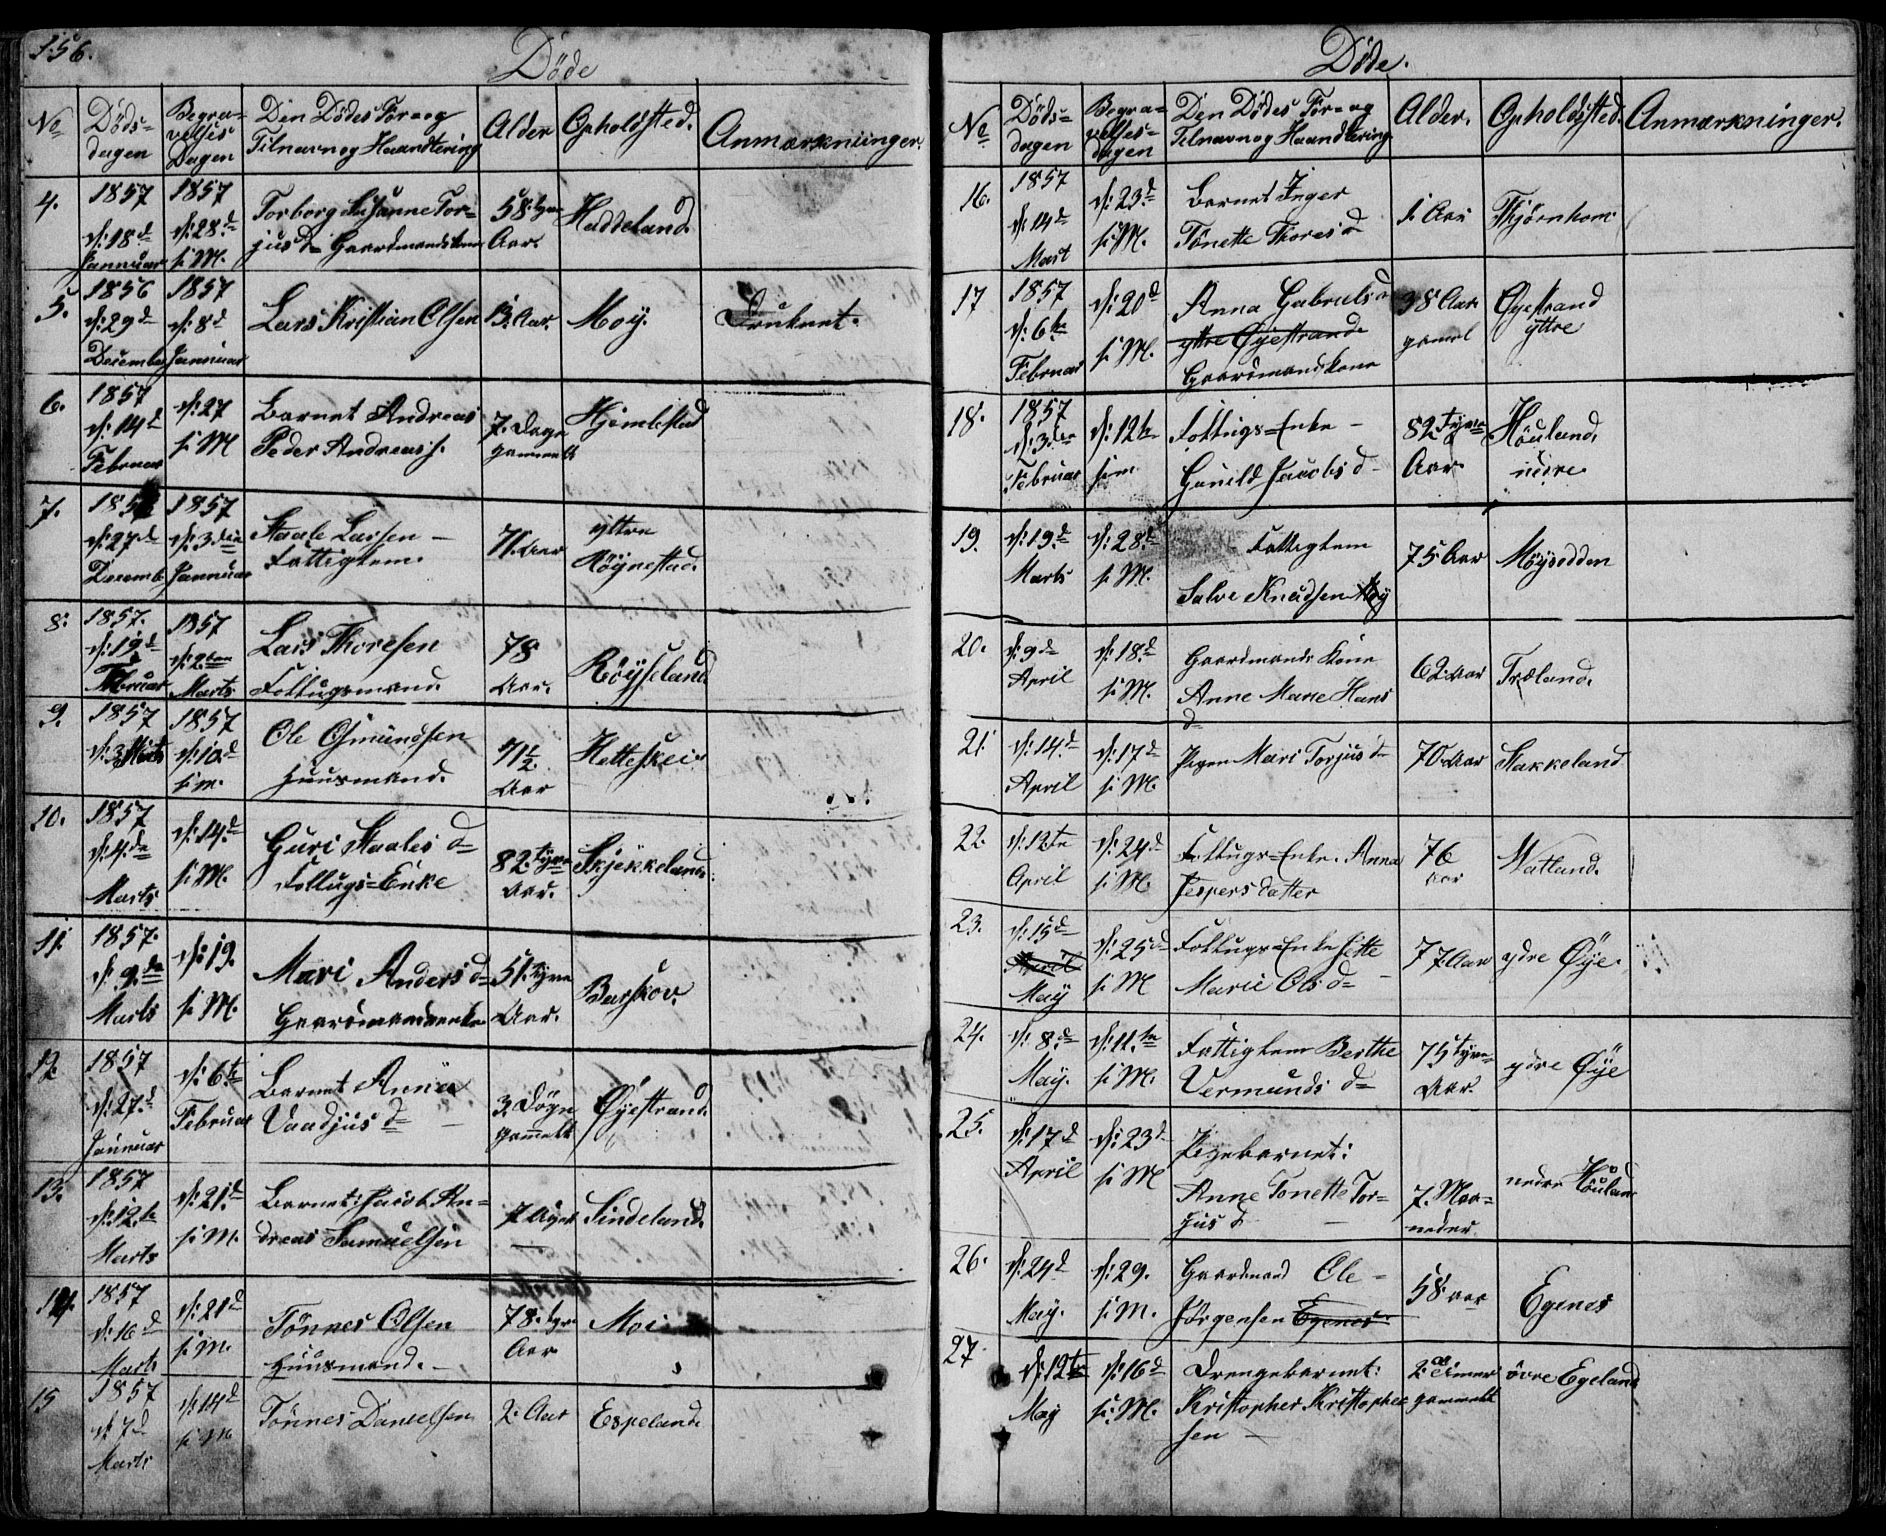 156.
Døde
No
Døds-
dagen
Begra-
velsis
Dagen
Den Dødes For og
Tilnavn og Haandtering
Alder
Opholdsted.
Anmærkninger.
4.
1857
d: 18d
Jannuar
1857
d: 28d
s: M.
Torborg Susanne Tor=
jus d= Gaardmandskone
58. tyve
Aar.
Haddeland.
5.
1856
d: 29d
Decembr
1857
d: 8d
Jannuar
Lars Kristian Olsen
13. Aar.
Moy.
Druknet.
6.
1857
d: 14d
Februar
d: 27
s: M
Barnet Andreas
Peder Andreas s.
7. Dage
gammelt
Hjemlestad
7.
185
d: 27d
Decemb
1857
d: 3die
Jannuar
Staale Larsen –
Fattiglem.
71. Aar
yttre
Røynestad.
8.
1857.
d: 19d
Februar
1857
d: 2den
Marts
Lars Thoresen
Follugsmand.
78
Aar.
Røysseland
9.
1857
d: 3 Marts
1857
d: 10d
s: m.
Ole Osmundsen
Huusmand.
71½
Aar
Hetteskei
10.
1857
d: 4de
Marts
d: 14d
s: M.
Guri Staales d=
Follugs=Enke
82. tyve
Aar.
Skjekkeland.
11.
1857.
d: 9de
Marts
d: 19.
s: M.
Mari Anders d=
Gaardmandsenke
51. tyve
Aar.
Barskov.
12.
1857
d: 27d
Jannuar
d: 6te
Februar
Barnet Anna
Vaadjus d= –
3. Døgn
gammelt
Øyestrand.
13.
1857
d: 12te
Marts
d: 21d
s: M.
Barnet: Jacob An=
dreas Samuelsen
7 Uger
Sindeland.
14.
1857
d: 16d
Marts
d: 21d
s: M.
Tönnes Olsen
Huusmand. –
78. tyve
Aar
Moi
15
1857
d: 7d
Marts
d: 14d
s: M
Tönnes Danielsen
2. Aar
Espeland.
Døde.
No
Døds-
dagen
Begra=
velses-
dagen
Den Dødes For= og
Tilnavn og Haandtering
Alder.
Opholdsted.
Anmærkninger.
16.
1857
d: 14d
Mart
d: 23d
s: M.
Barnet Inger
Tönette Thores d
1. Aar
Thjørnhom
17
1857
d: 6te
Februar
d: 20d
s: M.
Anna Gabriels d
yttre Øyestrand
Gaardmandskone
38 Aar
gamel
Øyestrand
yttre
18.
1857
d: 3die
Februar
d: 12te
s: m
Follugs=Enke –
Gunild Jacobs d–
82 tyve
Aar.
Höuland.
nedre
19.
d: 19d
Marts
d: 28d
s: M.
Fattiglem
Salve Knudsen Moy
75. Aar
Möysodden
20.
d: 9de
April
d: 18d
s: M.
Gaardmands Kone
Anne Marie Hans
d=
62. Aar
Træland.
21.
d: 14d
April
d: 17d
s: M.
Pigen Mari Torjus d=
70. Aar
Stakkeland
22.
d: 12te
April
d: 24d
s: M.
Follugs=Enke. Anna
Jespersdatter
76
Aar
Watland.
23.
d: 15d
April
May
d: 25d
s: M
Follugs=Enke Sitte
Marie Ols d=
77. Aar
ydre Øye.
24.
d: 8de
May.
d: 11te
s: M.
Fattiglem Berthe
Vermunds d=
75 tyve
Aar.
ydre Øye
25.
d: 17d
April
d: 23d
s: M
Pigebarnet:
Anne Tonette Tor=
jus d –
7. Maa=
neder.
nedre Höuland
26.
d: 24d
May.
d: 29.
s: M.
Gaardmand Ole –
Jörgensen Egenes
58. Aar
Egenes
27
d: 12te
May
d: 16d
s: M.
Drengebarnet:
Kristopher Kristopher
sen –
2. Timer
gammelt
övre Egeland